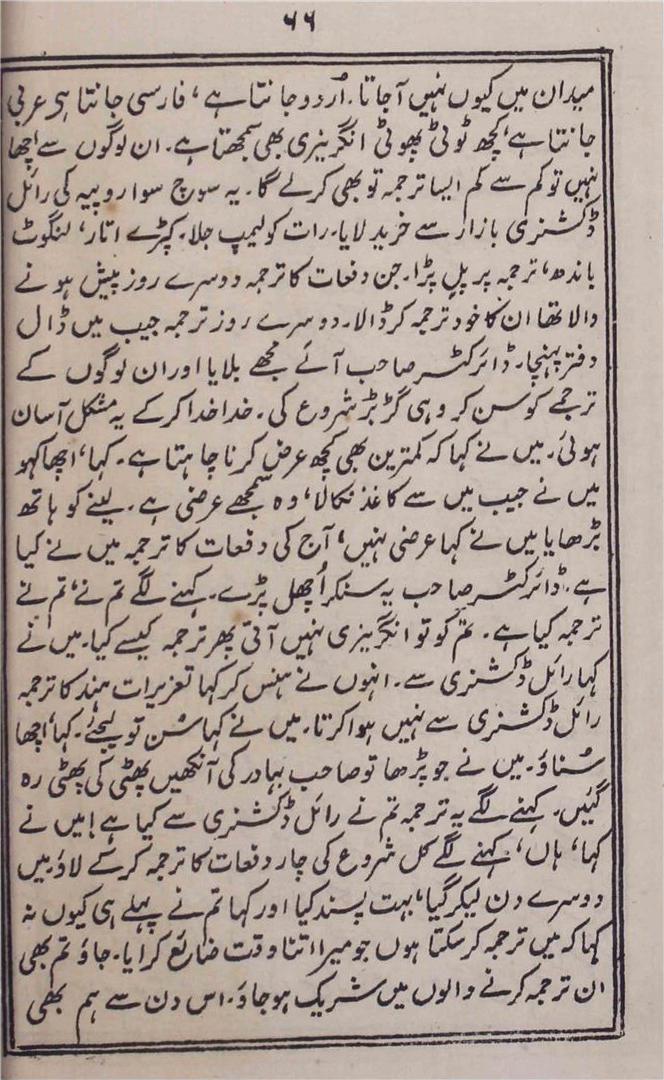 ۶۶
میدان میں کیوں نہیں آجاتا۔ اُردو جانتا ہے، فارسی جانتا ہی عربی
جانتا ہے، کچھ ٹوٹی پھوٹی انگریزی بھی سمجھتا ہے۔ ان لوگوں سے اچھا
نہیں تو کم سے کم ایسا ترجمہ تو بھی کرلے گا۔ یہ سوچ سوا روپیہ کی رائل
ڈکشنری بازار سے خرید لایا۔ رات کو لیمپ جلا۔ کپڑے اتار، لنگوٹ
باندھ، ترجمہ پر پل پڑا۔ جن دفعات کا ترجمہ دوسرے روز پیش ہونے
والا تھا ان کا خود ترجمہ کر ڈالا۔ دوسرے روز ترجمہ جیب میں ڈال
دفتر پہنچا۔ ڈائرکٹر صاحب آئے مجھے بلایا اور ان لوگوں کے
ترجمے کو سن کر وہی گڑبڑ شروع کی۔ خدا خدا کرکے یہ مشکل آسان
ہوئی۔ میں نے کہا کہ کمترین بھی کچھ عرض کرنا چاہتا ہے۔ کہا، اچھا کہو
میں نے جیب میں سے کاغذ نکالا، وہ سمجھے عرضی ہے۔ لینے کو ہاتھ
بڑھایا میں نے کہا عرضی نہیں، آج کی دفعات کا ترجمہ میں نے کیا
ہے۔ ڈائرکٹر صاحب یہ سنکر اُچھل پڑے۔ کہنے لگے تم نے، تم نے
ترجمہ کیا ہے۔ تم کو تو انگریزی نہیں آتی پھر ترجمہ کیسے کیا۔ میں نے
کہا رائل ڈکشنری سے۔ انہوں نے ہنس کر کہا تعزیرات ہند کا ترجمہ
رائل ڈکشنری سے نہیں ہوا کرتا۔ میں نے کہا سُن تو لیجئے۔ کہا، اچھا
سُناؤ۔ میں نے جو پڑھا تو صاحب بہادر کی آنکھیں پھٹی کی پھٹی رہ
گئیں۔ کہنے لگے یہ ترجمہ تم نے رائل ڈکشنری سے کیا ہے! میں نے
کہا، ہاں، کہنے لگے کل شروع کی چار دفعات کا ترجمہ کرکے لاؤ۔ میں
دوسرے دن لیکر گیا، بہت پسند کیا اور کہا تم نے پہلے ہی کیوں نہ
کہا کہ میں ترجمہ کرسکتا ہوں جو میرا اتنا وقت ضائع کرایا۔ جاؤ تم بھی
ان ترجمہ کرنے والوں میں شریک ہوجاؤ۔ اس دن سے ہم بھی